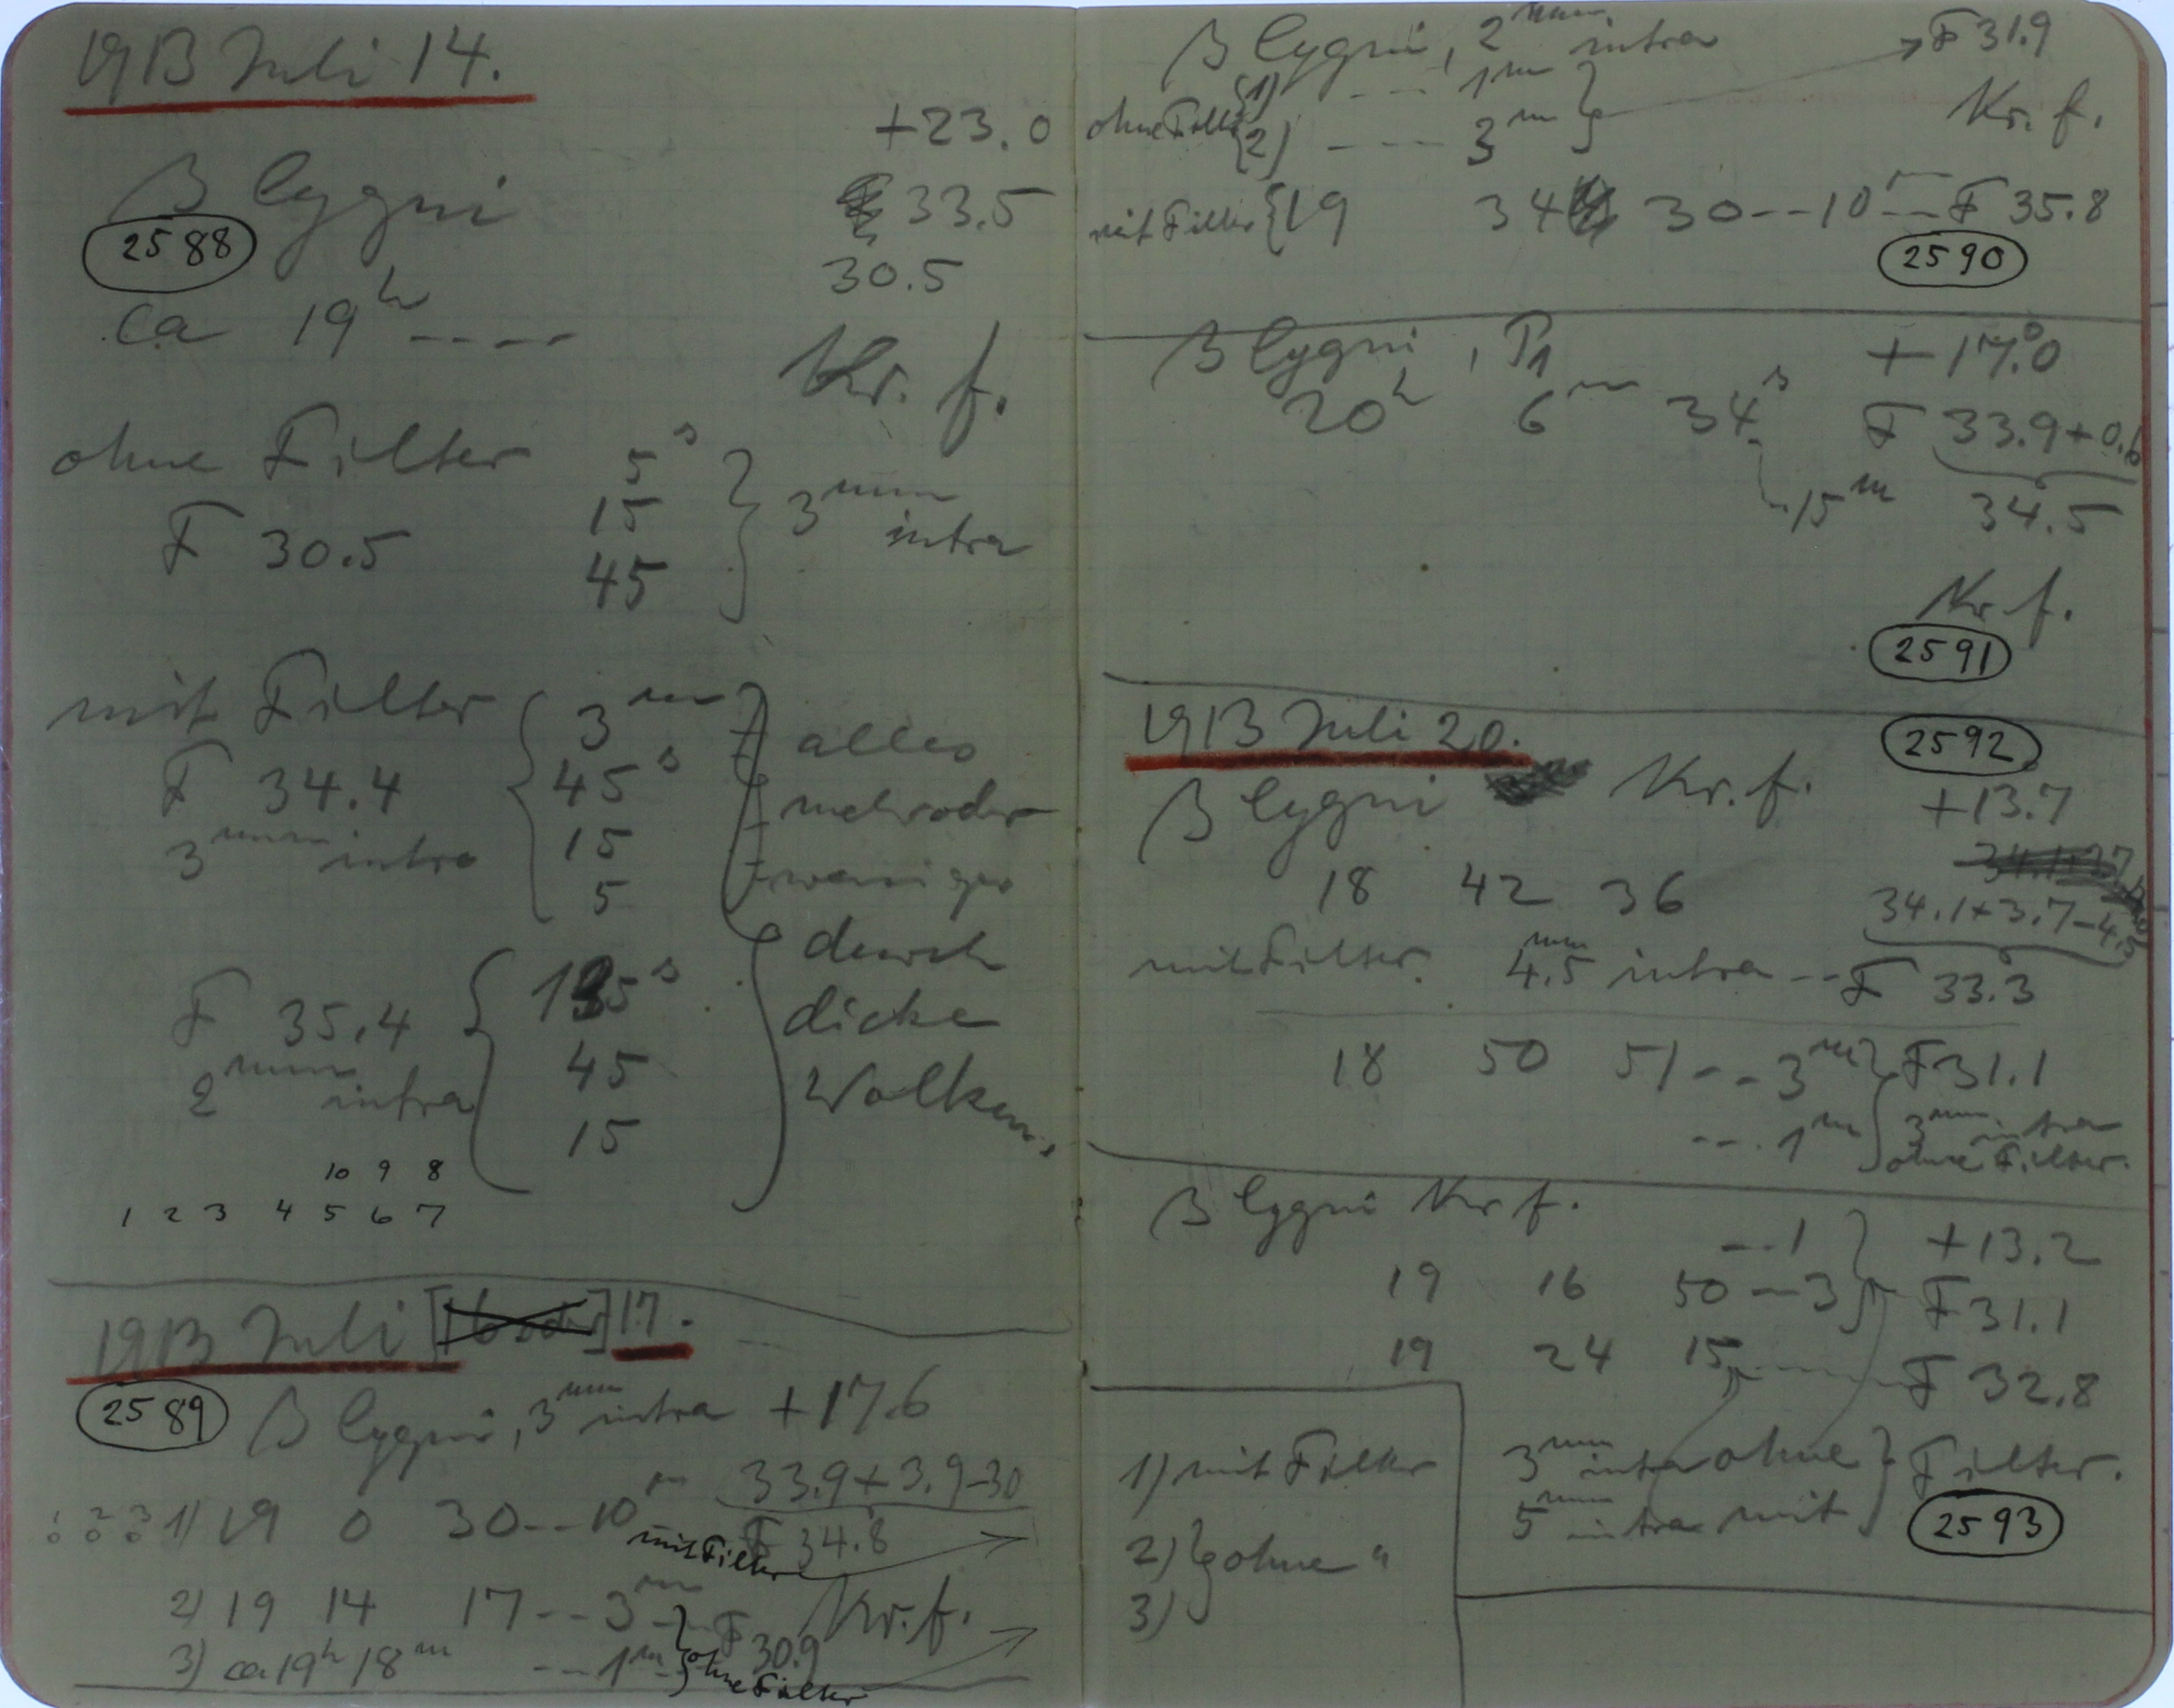 1913 Juli 14.
+23.0
β Cygni
33.5
2588
30.5
ca 19h ----
Kr. f.
ohne Filter 5s
F 30.5 15 3mm intra
45
mit Filter 3m alles
F 34.4 45s mehr oder
3mm intra 15 weniger
5 durch
F 35.4 135s dicke
2mm intra 45 Wolken,
15
10 9 8
1 2 3 4 5 6 7
1913 Juli [16 oder] 17.
2589 β Cygni, 3mm intra +17.6
33.9+3.9-30
1) 19 0 30--10m F 34.8
mit Filter
2) 19 14 17--3m Kr. f.
F 30.9
3) ca 19h 18m ---1m ohne Filter
β Cygni, 2mm intra F 31.9
ohne Filter 1) ---- 1m
2) ---- 3m Kr. f.
mit Filter 19 34 30--10m--F 35.8
2590
β Cygni, P1 +17.°0
20h 6m 34s F 33.9+0.6
15m 34.5
Kr. f.
2591
1913 Juli 20. 2592
β Cygni Kr. f. +13.7
18 42 36 34.1+3.7-4.5
mit Filter. 4.5mm intra --F 33.3
18 50 51--3m F 31.1
--.1m 3mm intra
ohne Filter.
β Cygni Kr f.
---1 +13.2
19 16 50--3 F 31.1
19 24 15----- F 32.8
1) mit Filter
2) ohne "
3)
3mm intra ohne Filter.
5mm intra mit
2593